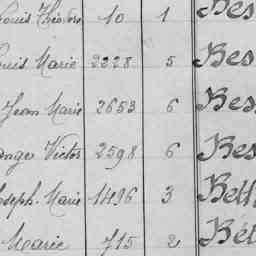 Louis Théodore 10 1 Bes
Louis Marie 2228 5 Bes
Jean Marie 2653 6 Bes
Ange Victor 2598 6 Bes
Joseph-Marie 1496 3 Bell
Marie 715 2 Bét